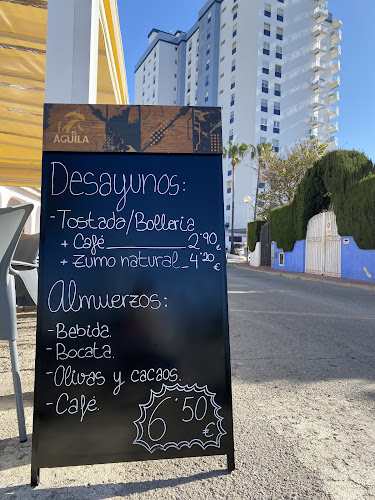 EL
AGUILA
Desayunos:
- Tostada/Bolleria
+ Café 2'90€
+ Zumo natural 4'20€
Almuerzos:
- Bebida.
- Bocata.
- Olivas y cacaos.
- Café.
6'50€